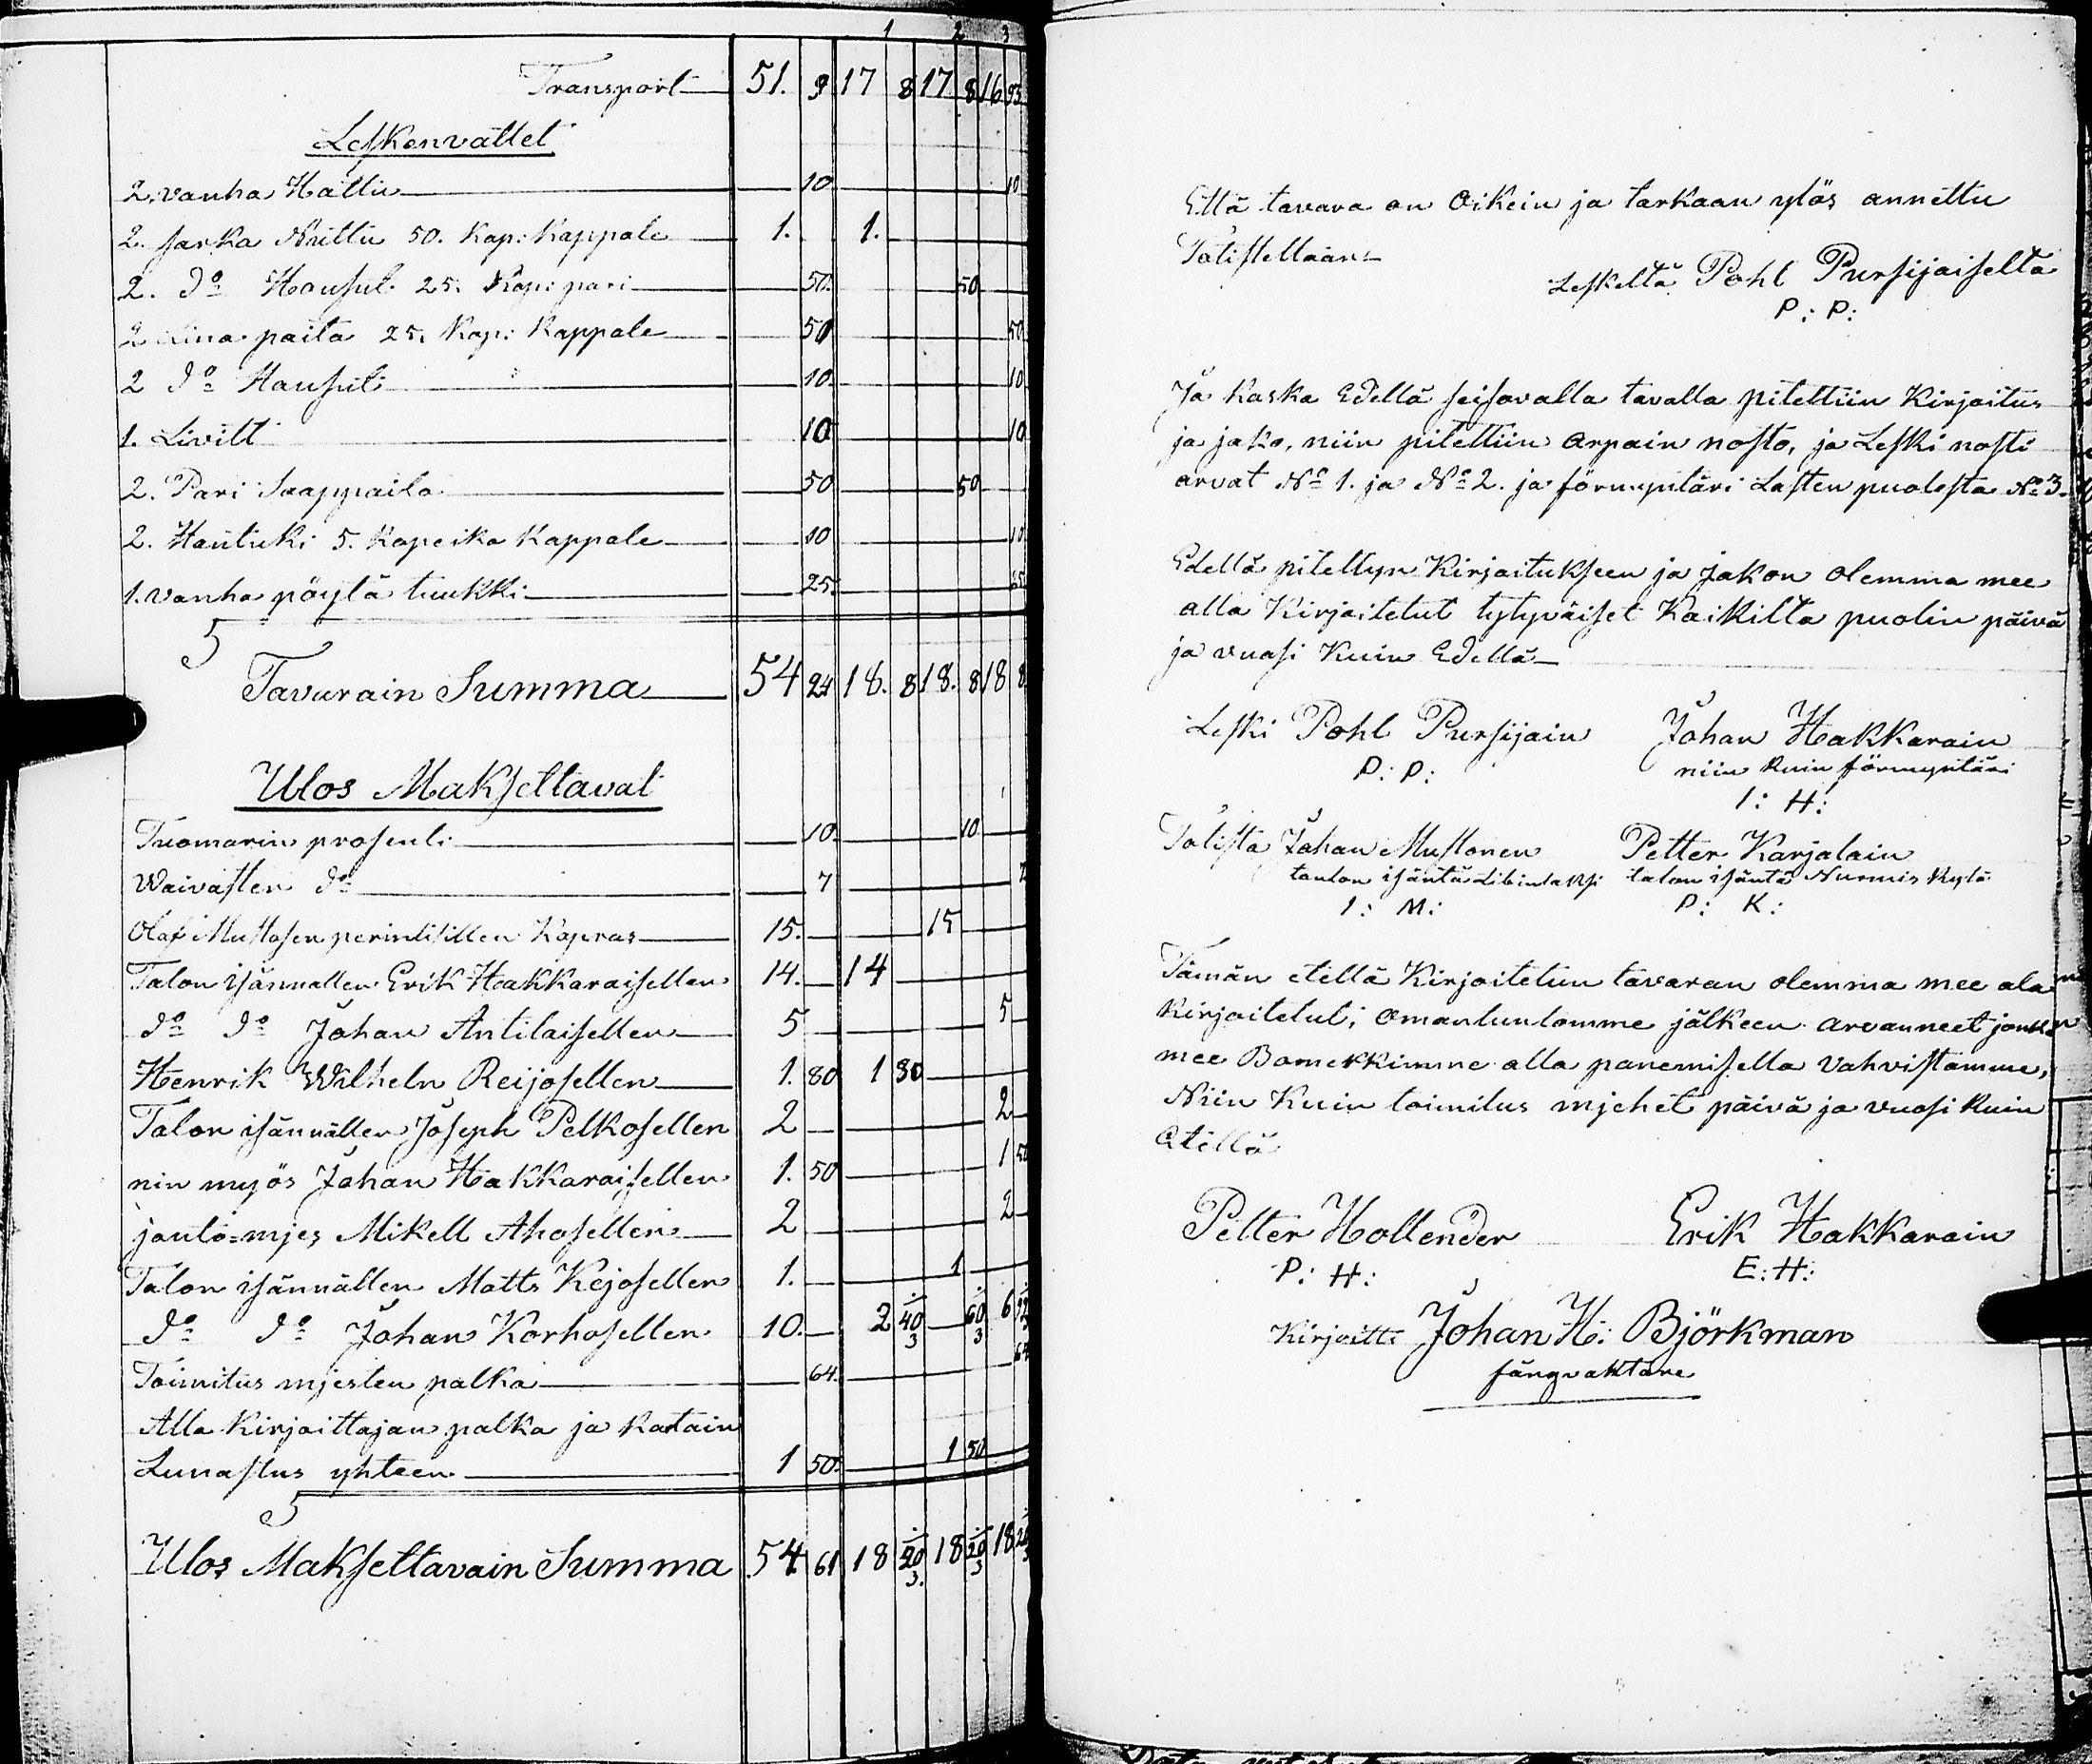 1 2 3
Transport 51. 9 17 8 17 8 16 93
Leskenvattet
2. vanha Hattu 10 10
2. sarka Nuttu 50. Kap: Kappale 1. 1.
2. Do Housut 25. Kap: pari 50. 50
2 Lina paita 25. Kap: Kappale 50 50
2 Do Hausut 10. 10
1. Livilt 10 10
2. Pari Saappaita 50 50
2. Hantuki 5. Kopeika Kappale 10 10
1. vanha pöytä tuukki 25. 25
Tavarain Summa 54 24 18. 8 18. 8 18 8
Ulos Maksettavat
Tuomarin prosenti 10. 10
Waivasten Do 7 7
Olaf Mustosen perintisillen Kapras 15. 15
Talon isännällen Erik Hakkaraisellen 14. 14
Do Do Johan Antilaisellen 5 5
Henrik Wilheln Reijosellen 1. 80 1 80
Talon isännällen Joseph Pelkosellen 2 2
nin myös Johan Hakkaraisellen 1. 50 1 50
jouto=mjes Mikell Ahosellen 2 2
Talon isännällen Matts Kejosellen 1. 1
Do Do Johan Korhosellen 10. 2 40/3 60/3 6
Toimitus mjesten palka 64. 64
Alla Kirjoittajan palka ja Kartain
Lunastus yhteen 1 50. 1 50
Ulos Maksettavain Summa 54 61 18 20/3. 18 20/3 18 20/3
Että tavara on Oikein ja tarkaan ylös annettu
Totistellaan
Leskeltä Pohl Pursijaiselta
P: P:
Ja Koska Edellä seisovalla tavalla pitettiin Kirjoitus
ja jako, niin pitettiin arpain nosto, ja Leski nosti
arvat No 1. ja No 2. ja förmyntäri Lasten puolesta No 3.
Edellä pitettyn Kirjoitukseen ja Jakon olemma mee
alla Kirjoitetut tytyväiset Kaikilta puolin päivä
ja vuosi Kuin Edellä
Leski Pohl Pursijain Johan Hakkarain
P: P: niin Kuin förmyntäri
I: H:
Totista Johan Mustonen Petter Karjalain
toulon isäntä Libinlaksi talon isäntä Nurmis Kylä
I: M: P: K:
Tämän etellä Kirjoitetun tavaran olemma mee ala
Kirjoitetut, omantuntomme jälkeen arvanneet jonka
mee Bomerkkimme alla panemisella Vahvistamme,
Niin Kuin toimitus mjehet päivä ja vuosi Kuin
etellä
Petter Hollender Erik Hakkarain
P: H: E: H:
Kirjoitti Johan H: Björkman
fångvaktare